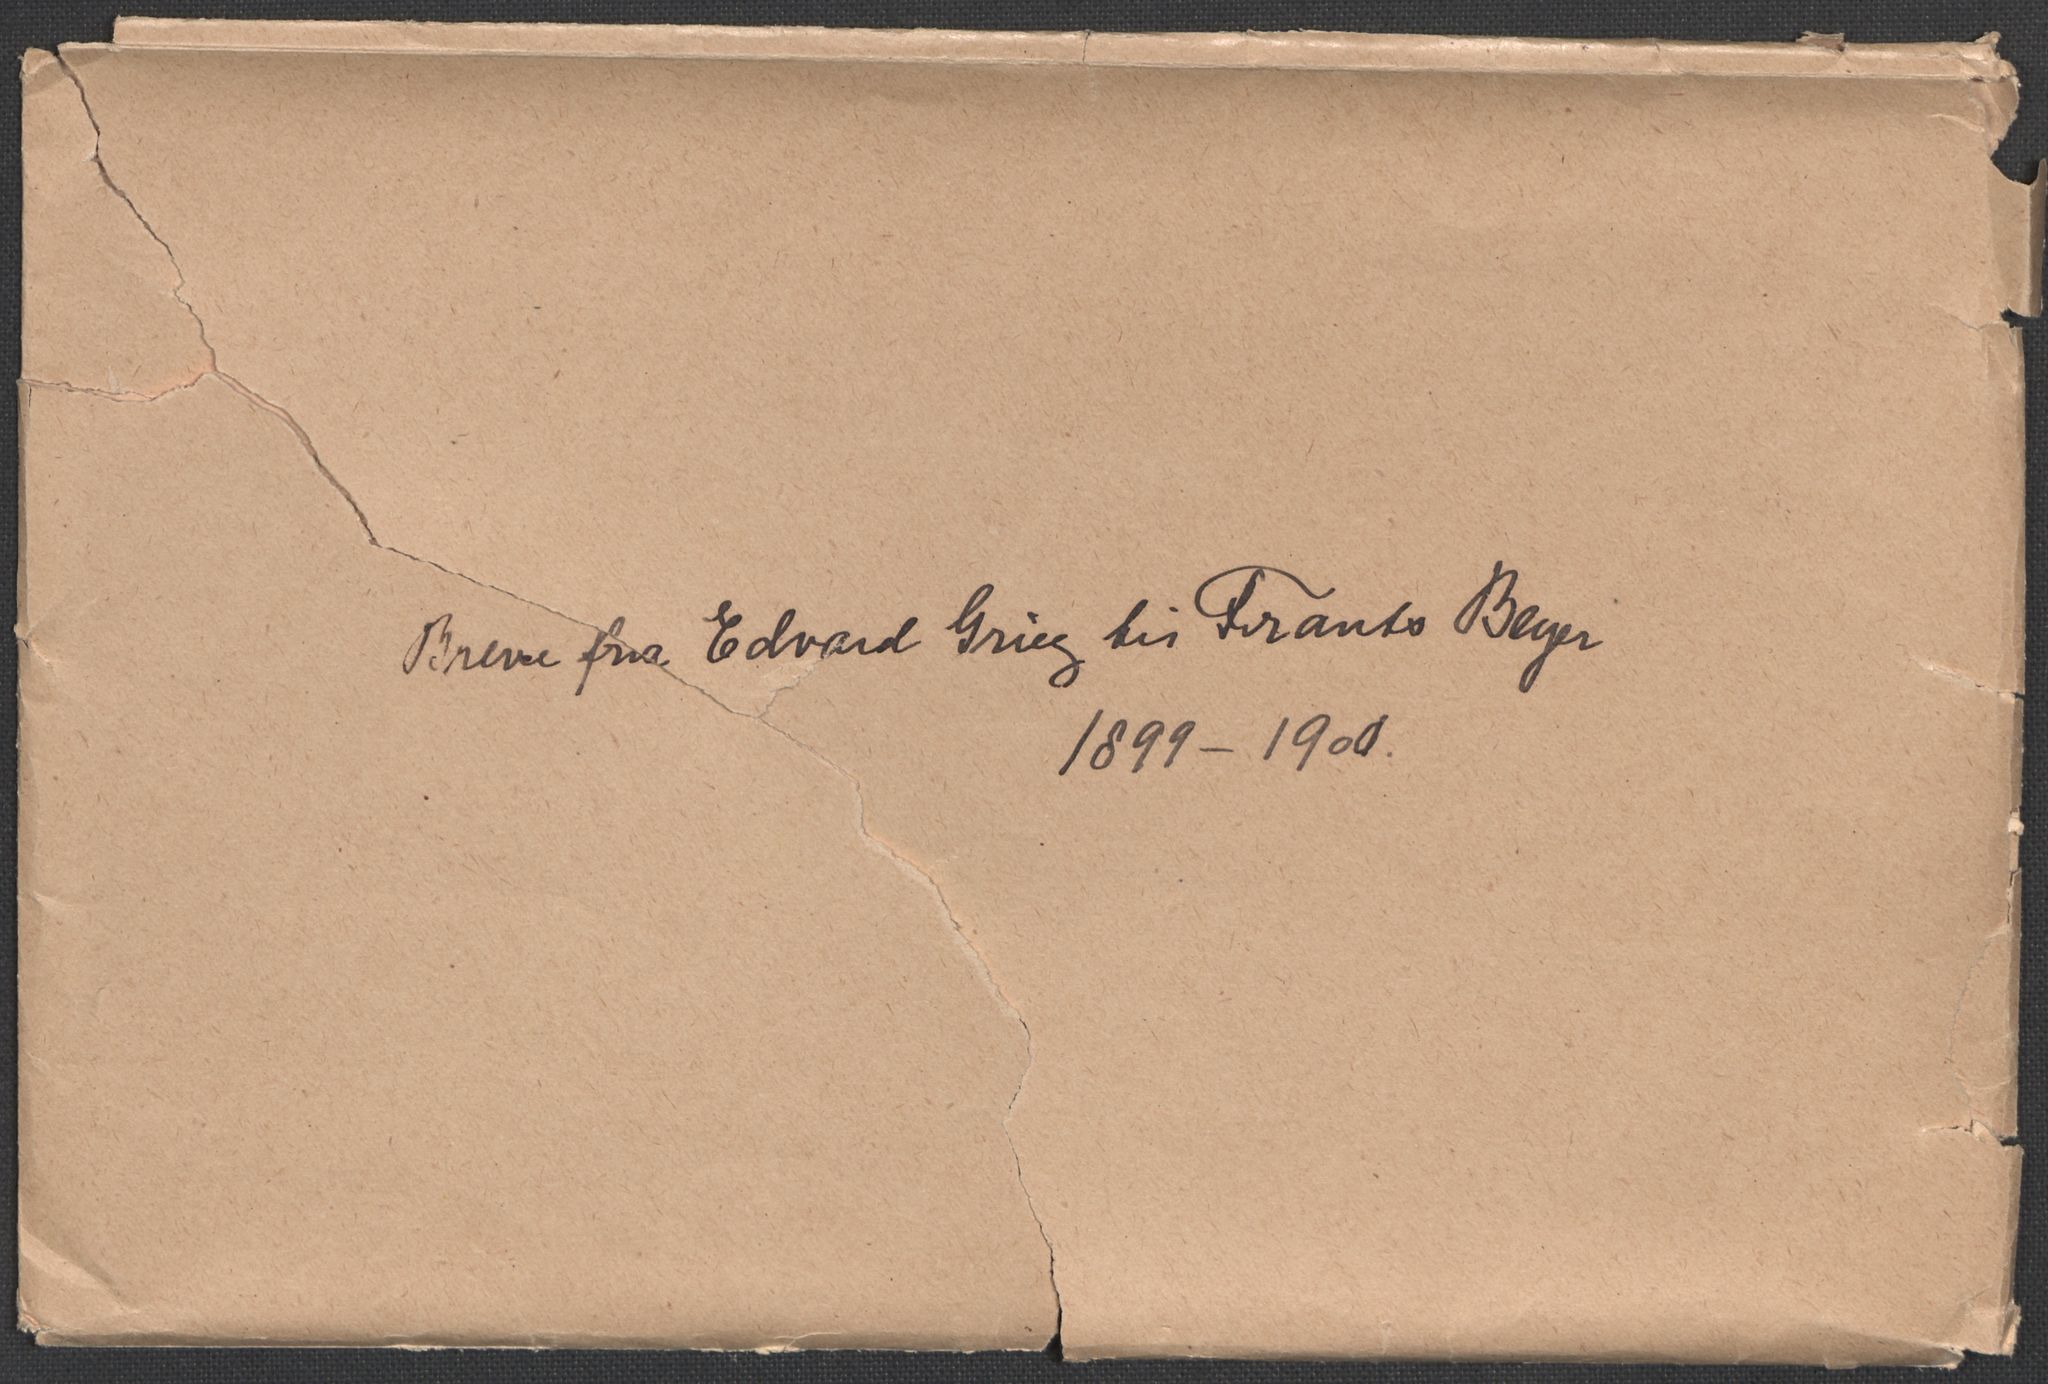 Breve fra Edvard Grieg til Frants Beyer
1899 – 1901.